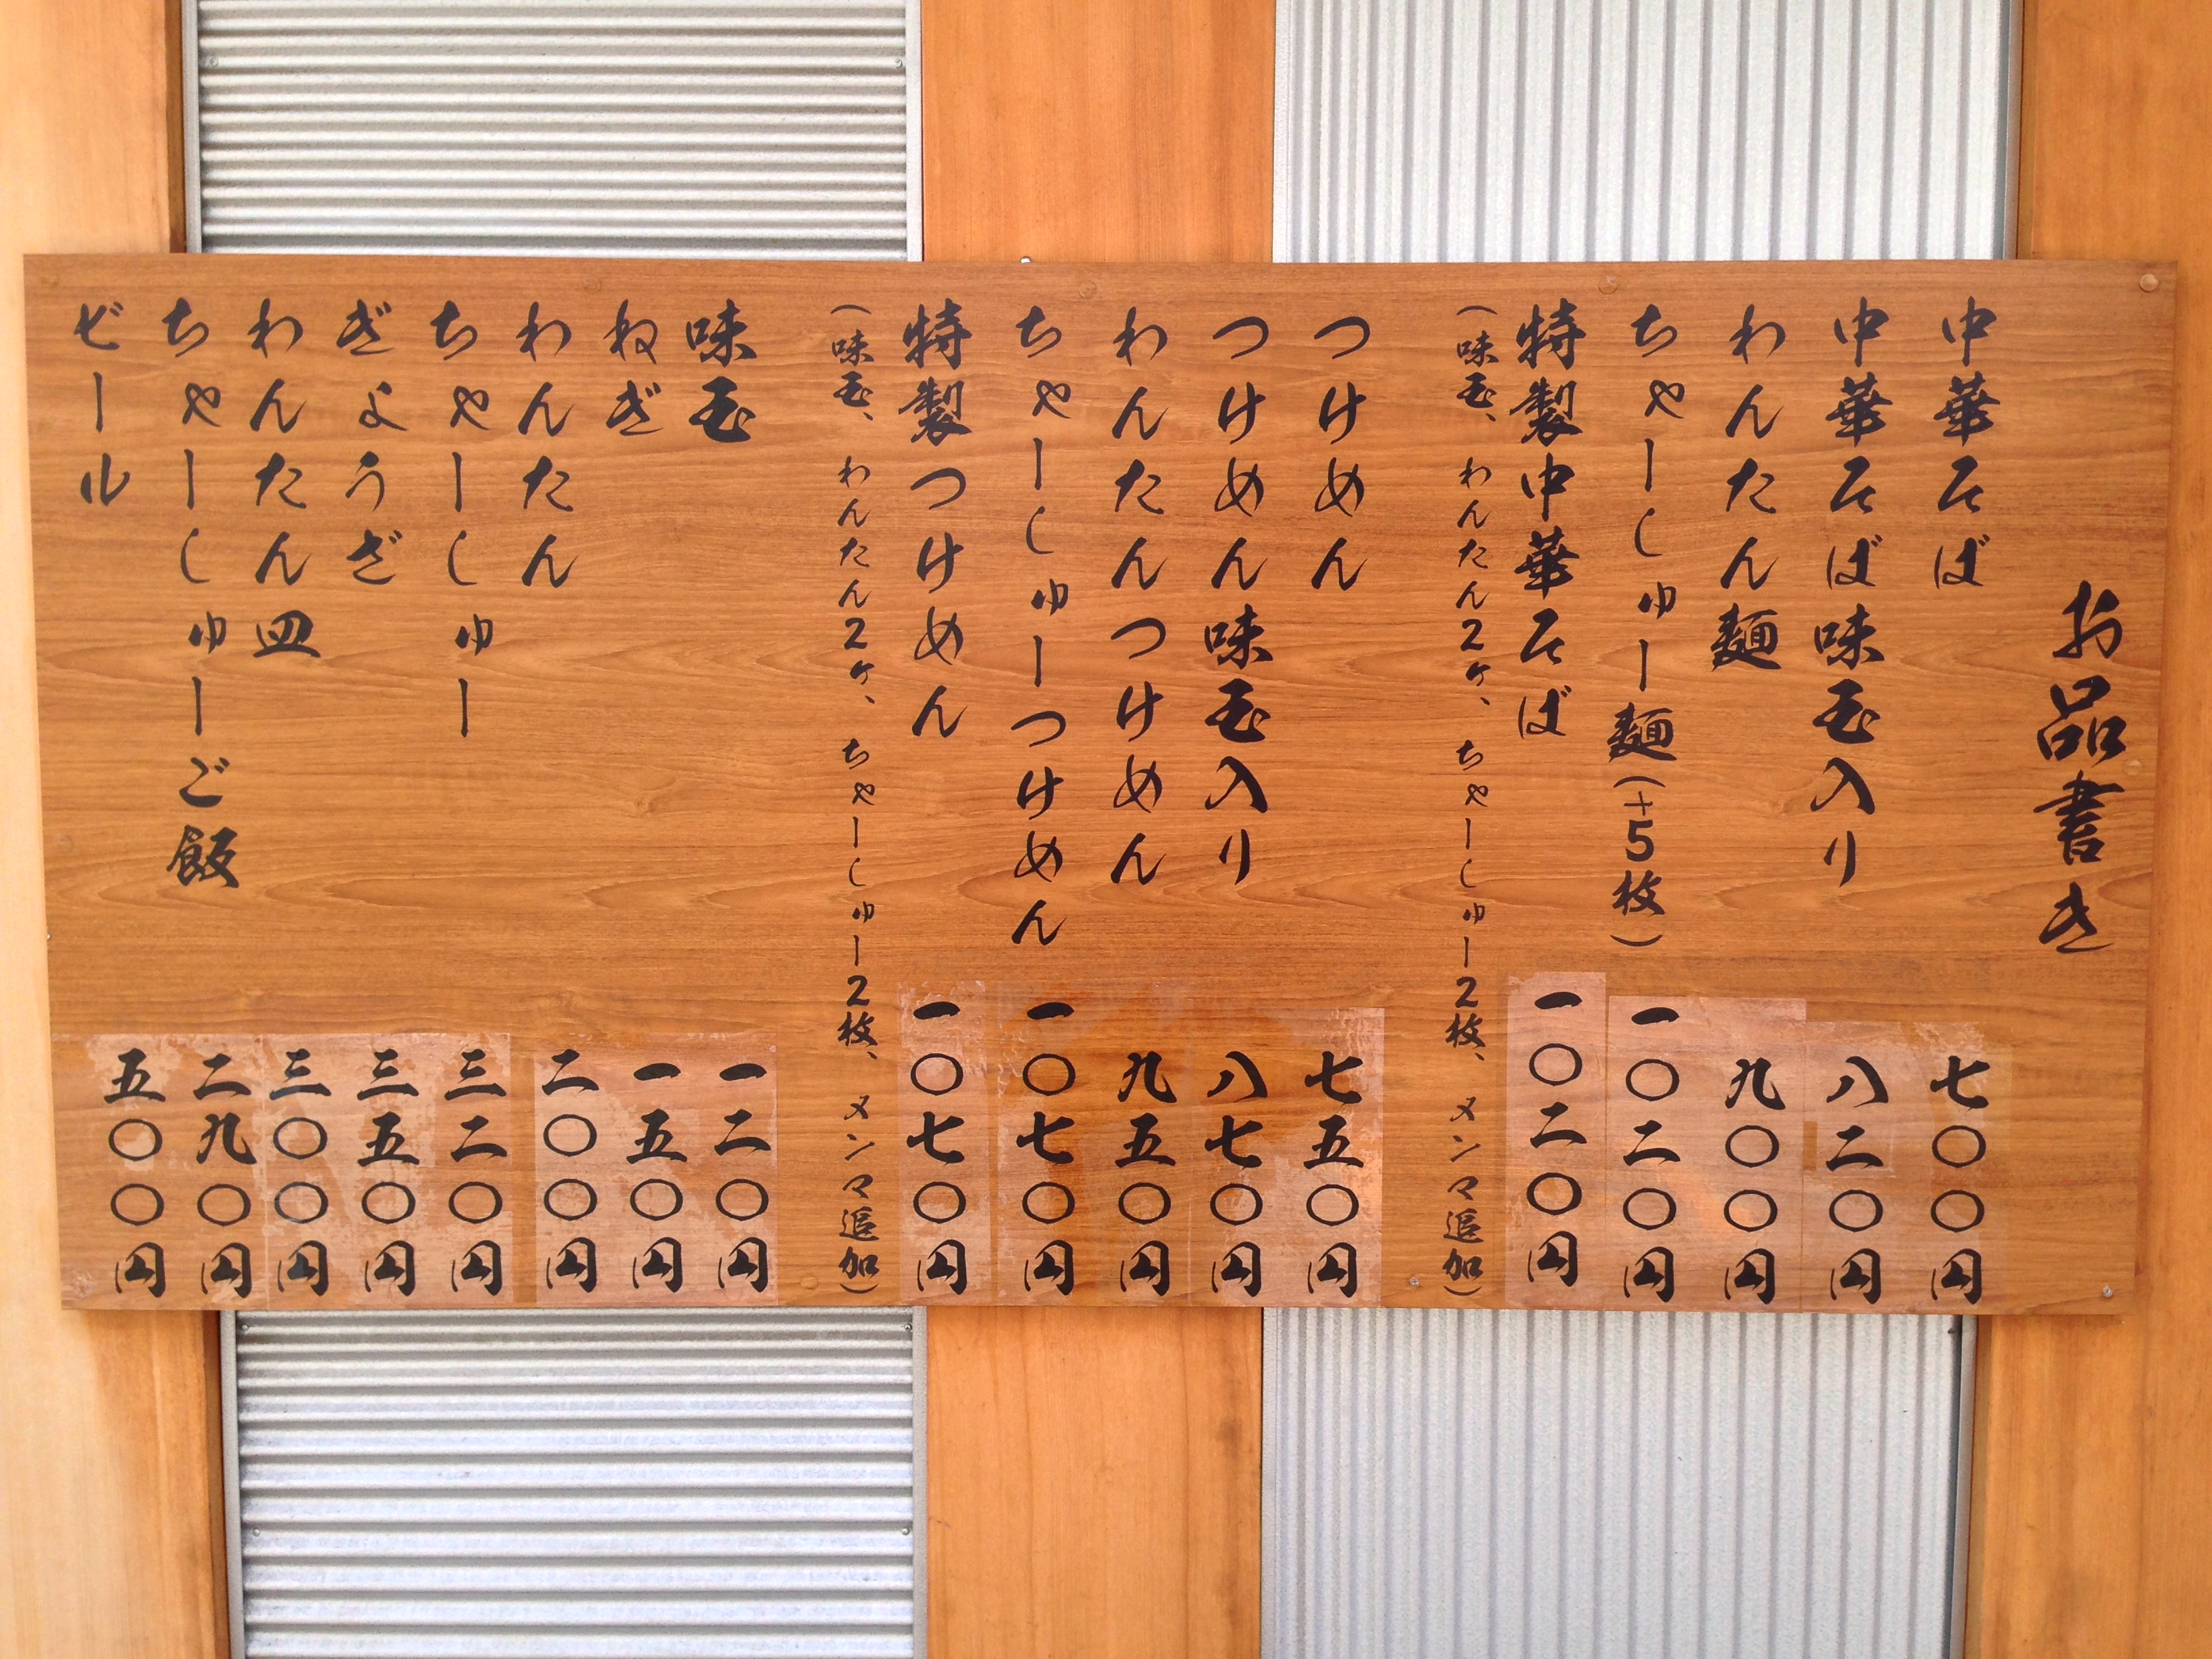 お品書き
中華そば 七〇〇円
中華そば味玉入り 八二〇円
わんたん麺 九〇〇円
ちゃーしゅー麺(+5枚) 一〇二〇円
特製中華そば 一〇二〇円
(味玉、わんたん2ヶ、ちゃーしゅー2枚、メンマ追加)
つけめん 七五〇円
つけめん味玉入り 八七〇円
わんたんつけめん 九五〇円
ちゃーしゅーつけめん 一〇七〇円
特製つけめん 一〇七〇円
(味玉、わんたん2ヶ、ちゃーしゅー2枚、メンマ追加)
味玉 一二〇円
ねぎ 一五〇円
わんたん 二〇〇円
ちゃーしゅー 三二〇円
ぎょうざ 三五〇円
わんたん皿 三〇〇円
ちゃーしゅーご飯 二九〇円
ビール 五〇〇円